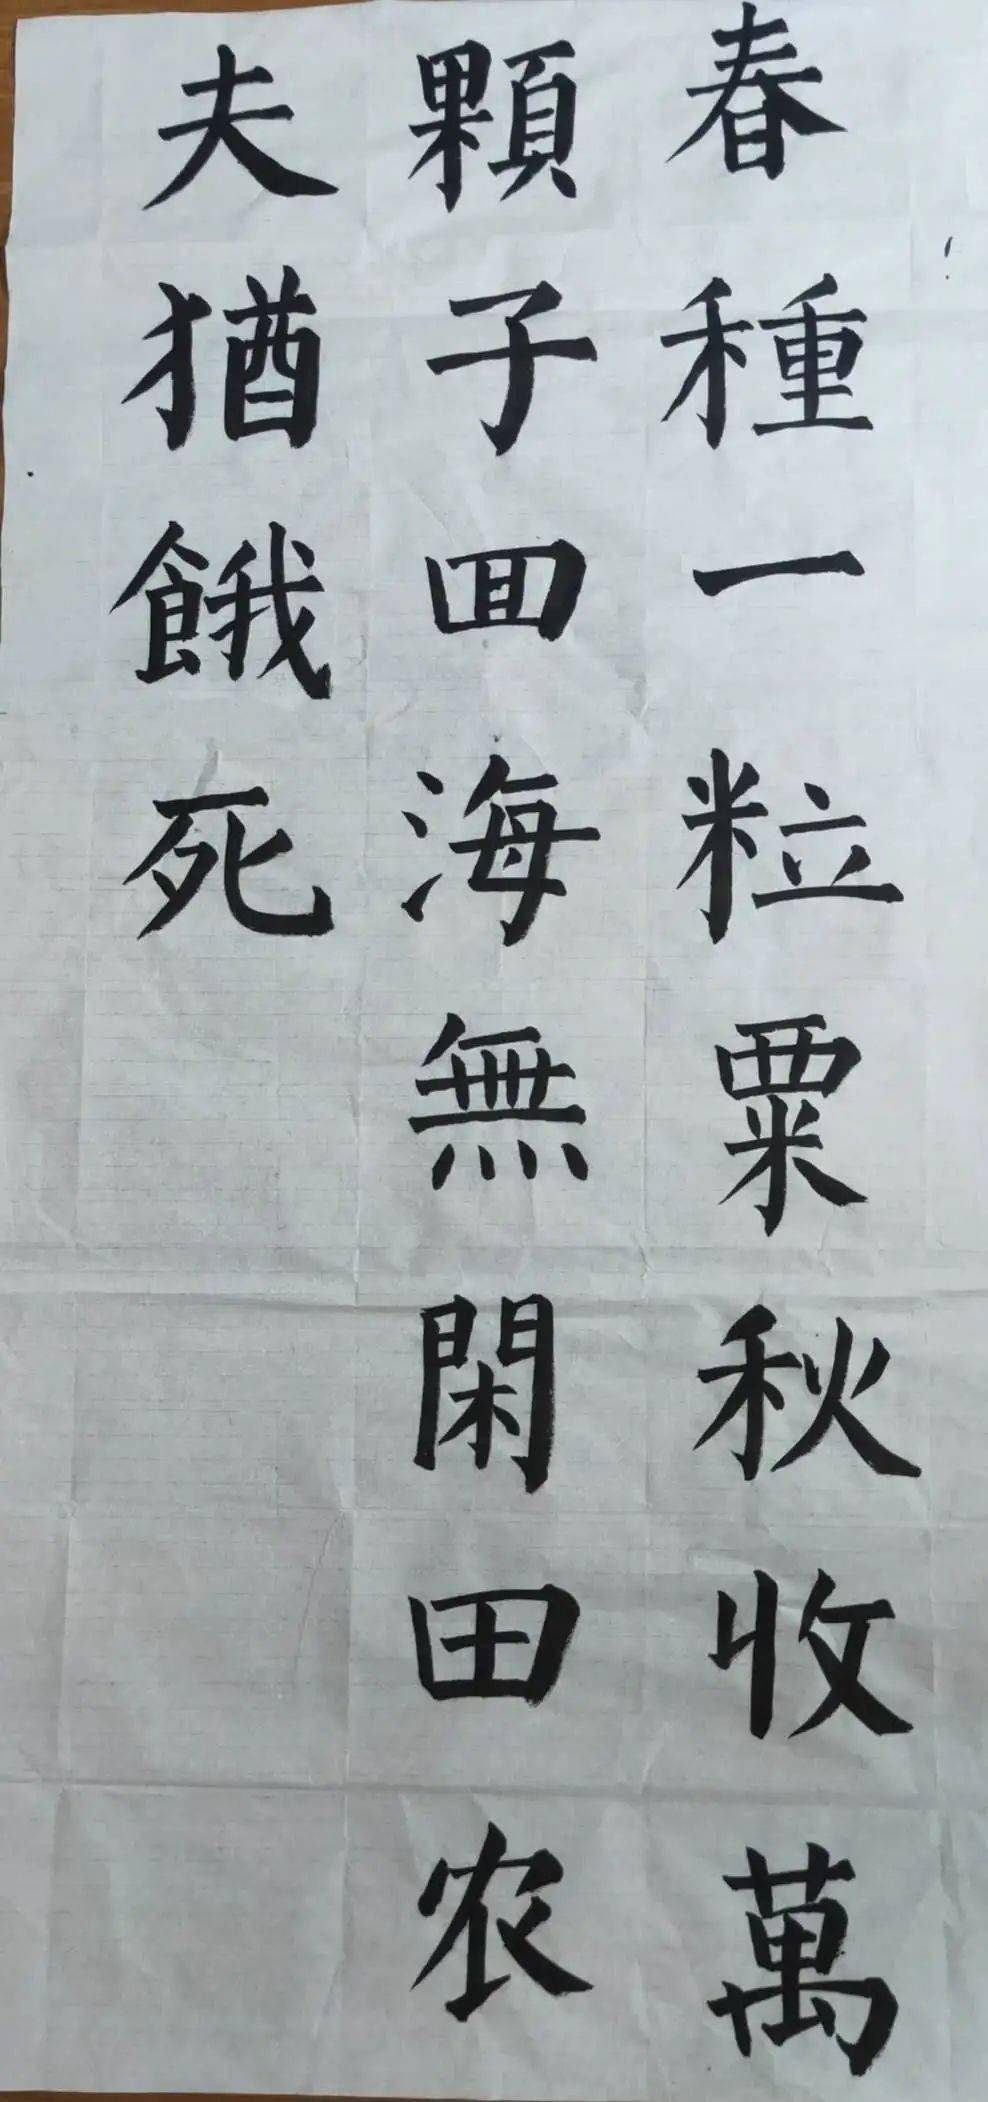 春種一粒粟秋收萬
顆子四海無閑田农
夫猶餓死